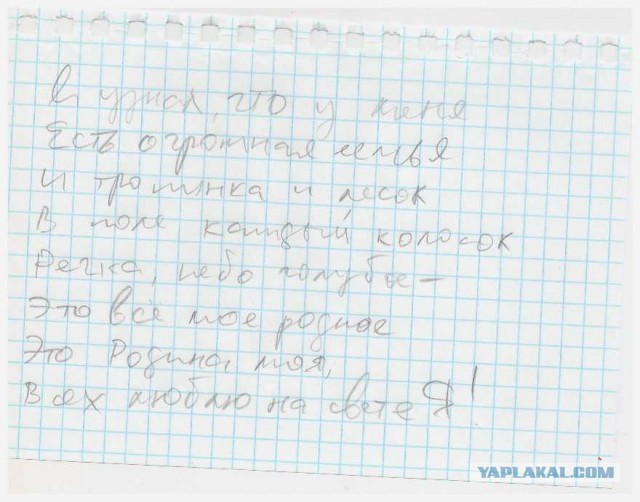 Я узнал, что у меня
Есть огромная семья
И тропинка и лесок
В поле каждый колосок
Речка, небо голубое –
Это всё мое родное
Это Родина моя,
Всех люблю на свете Я!
YAPLAKAL.COM